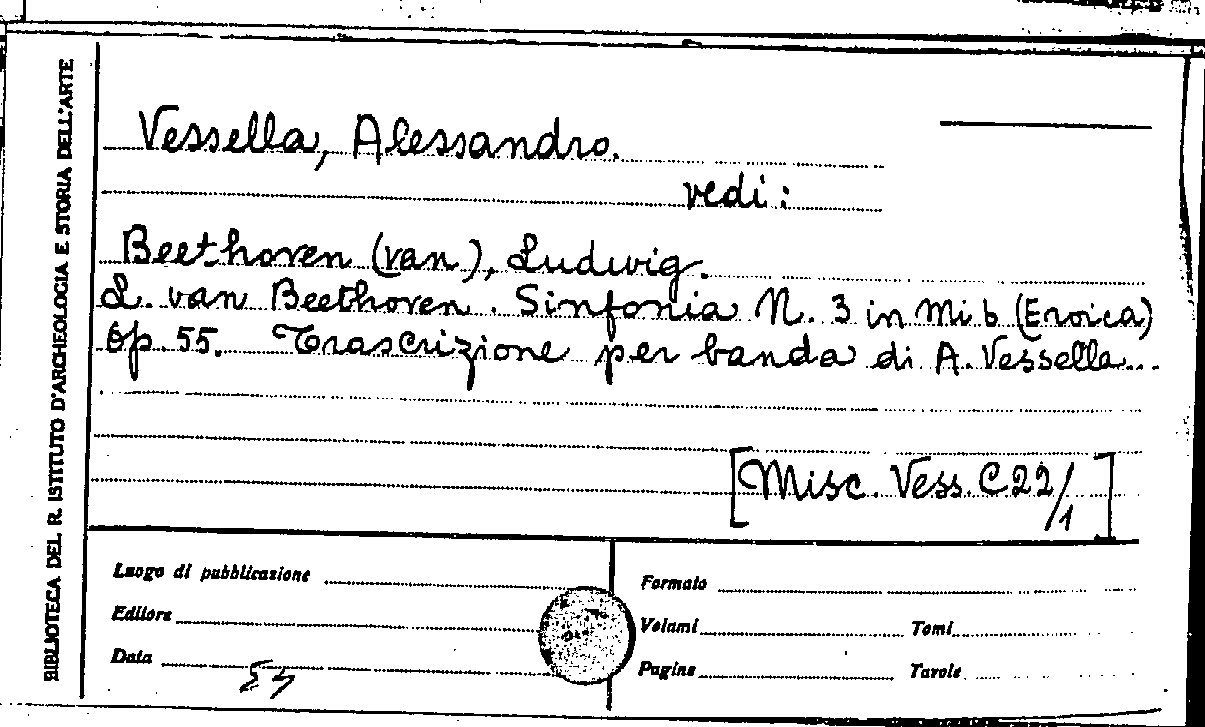 BIBLIOTECA DEL R. ISTITUTO D'ARCHEOLOGIA E STORIA DELL'ARTE
Vessella, Alessandro.
vedi:
Beethoven (van), Ludwig.
L. van Beethoven. Sinfonia N. 3 in Mi b (Eroica)
Op. 55. Trascrizione per banda di A. Vessella...
[Misc. Vess. C22/1]
Luogo di pubblicazione
Editore
Data
Formato
Volumi
Tomi
Pagine
Tavole